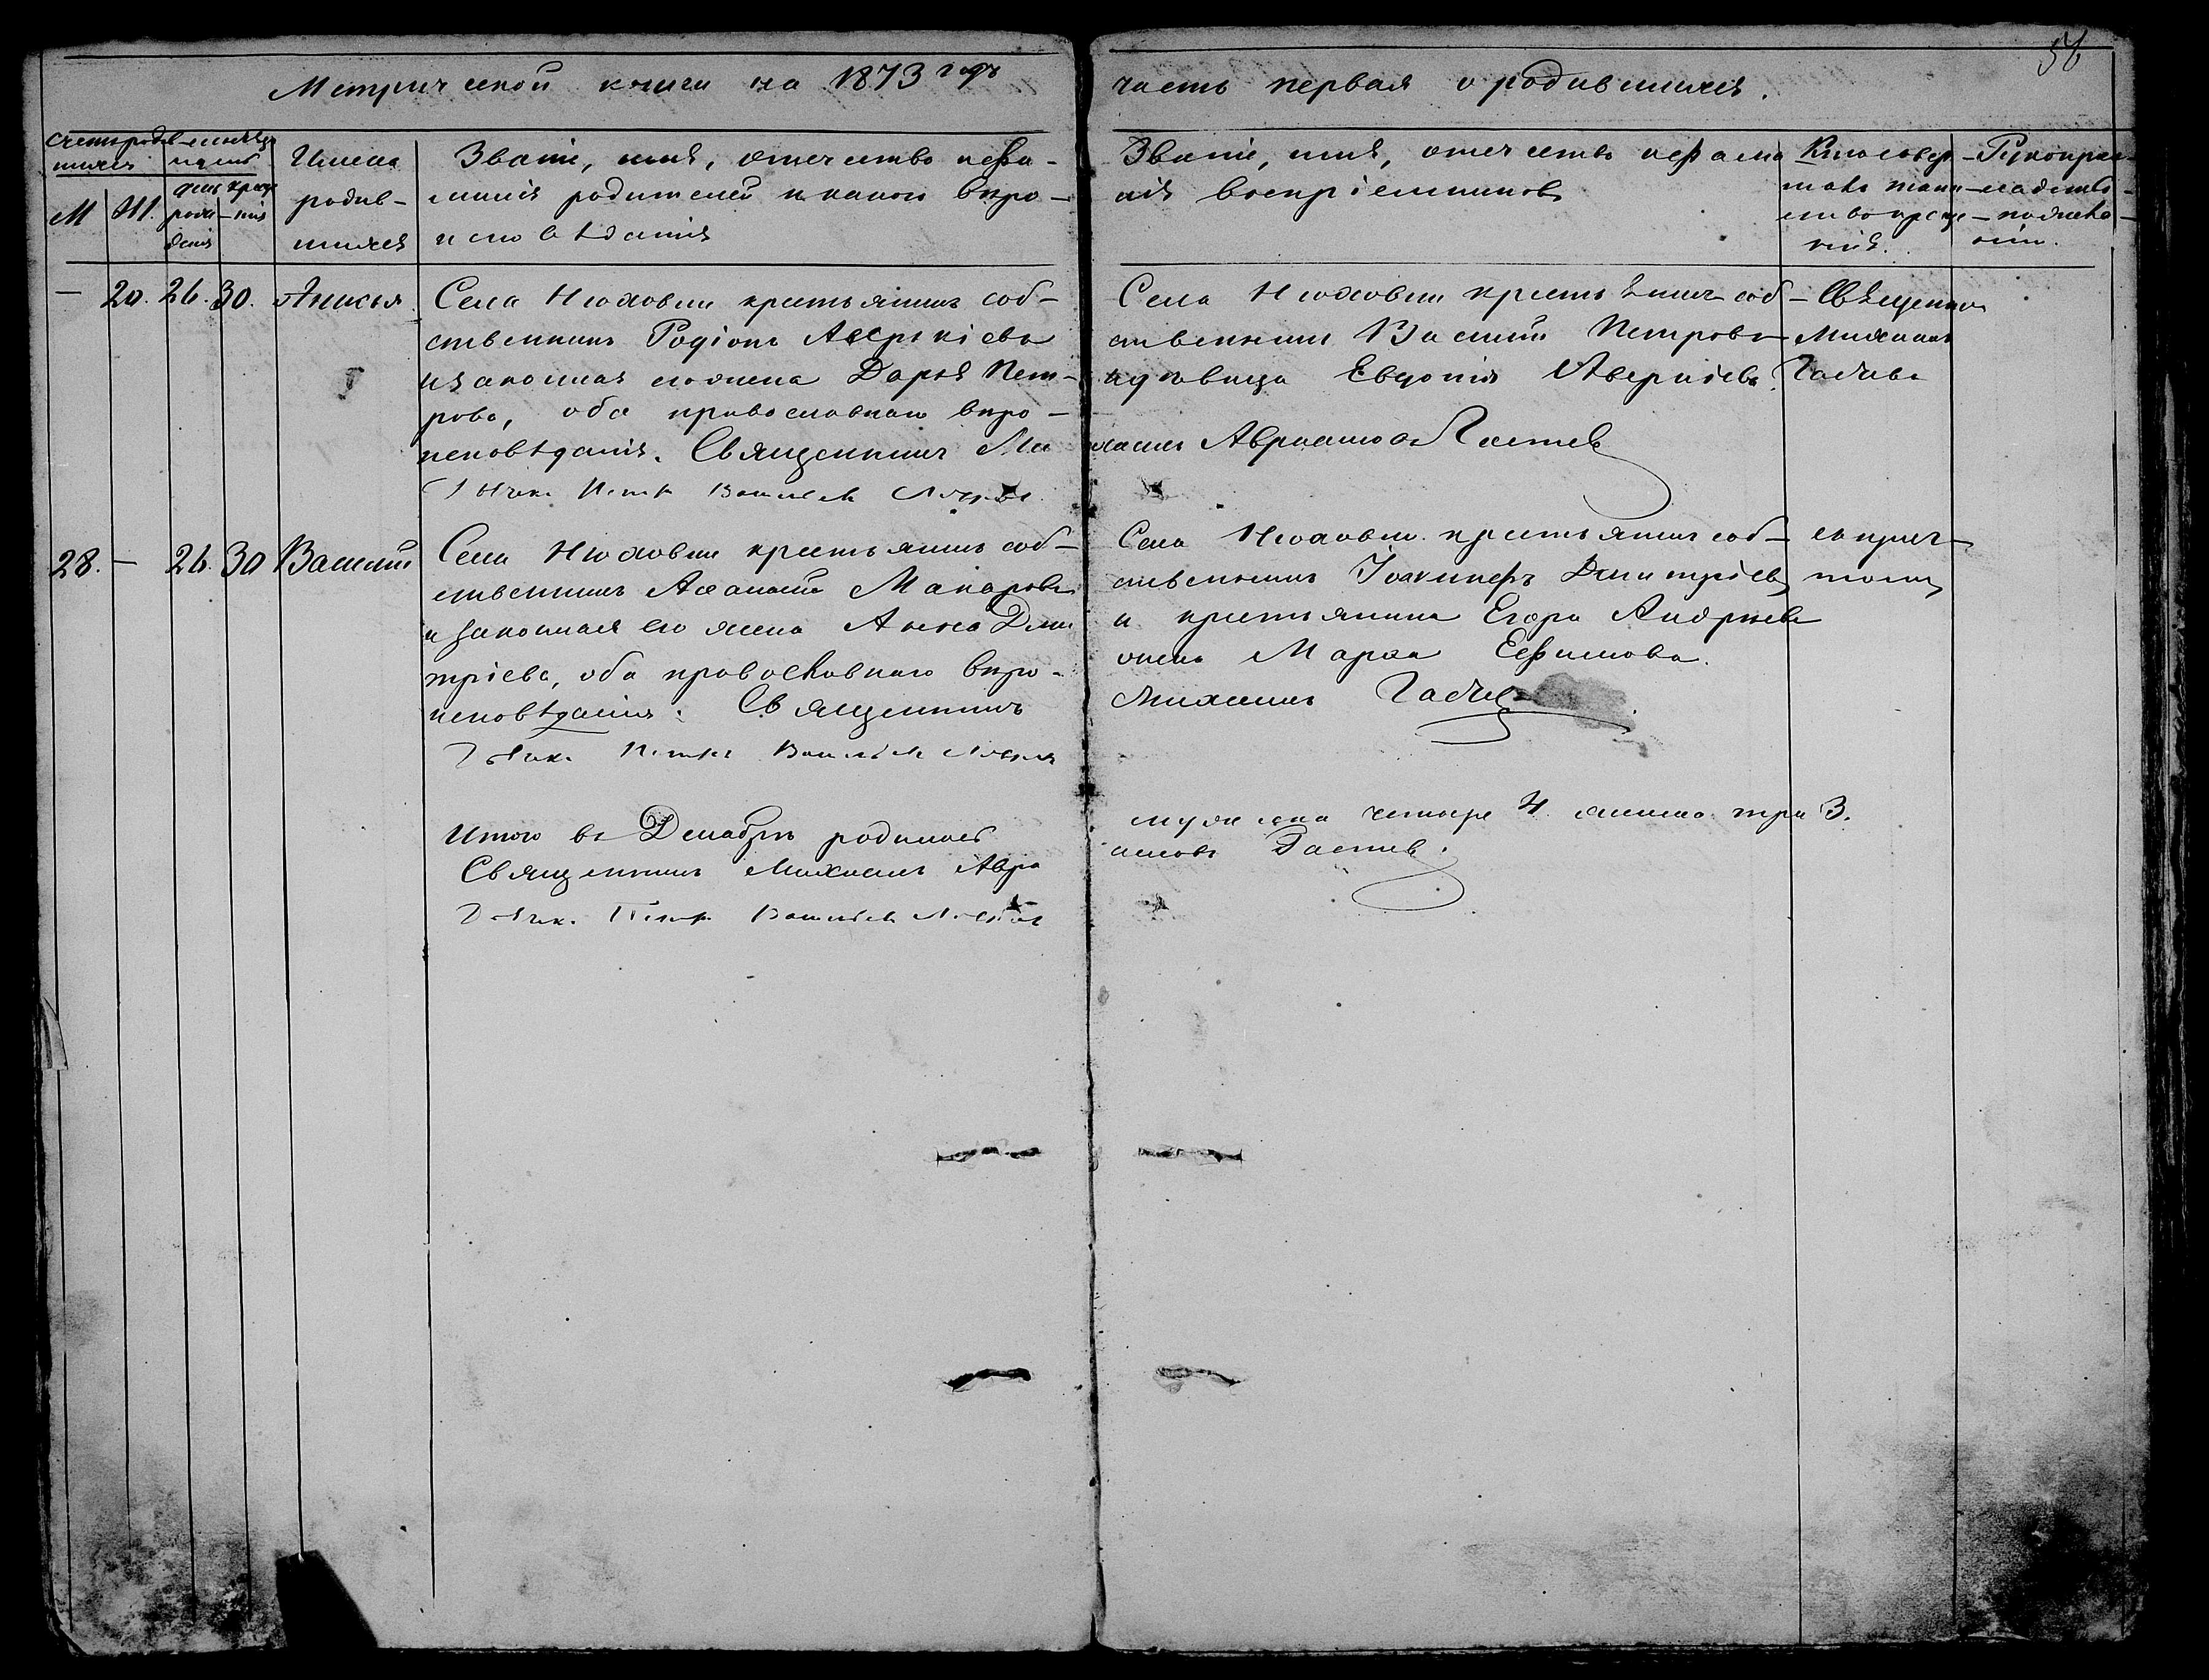 58
Метрической книги на 1873 годъ
часть первая о родившихся.
Счетъ родив-
шихся
М Ж.
Месяцъ
и день
рож-
денія
крещ-
нія
Имена
родив-
шихся
Званіе, имя, отчество и фа-
милія родителей и какого вѣро-
исповѣданія
Званіе, имя, отчество и фами
лія воспріемниковъ
Кто совер-
шалъ таин-
ство креще-
нія.
Рукопри-
кладство
— 20. 26. 30. Анисья
Села Нюховки крестьянинъ соб-
ственникъ Родіонъ Аверкіевъ
и законная его жена Дарья Пет-
рова, оба православнаго вѣро-
исповѣданія. Священникъ Ми
Дьячк. Петръ Васильевъ
Села Нюховки крестьянинъ соб-
ственникъ Василій Петровъ
и девица Евдокія Аверкіева.
хаилъ Авраамовъ Гастевъ
Священникъ
Михаилъ
Гастевъ
28. — 26. 30 Василий
Села Нюховки крестьянинъ соб-
ственникъ Аѳанасій Макаровъ
и законная его жена Анна Дми
тріева, оба православнаго вѣро-
исповѣданія. Священникъ
Дьячк. Петръ Васильевъ
Села Нюховки крестьянинъ соб-
ственникъ Іоакинфъ Димитріевъ
и крестьянина Егора Андреева
жена Марѳа Ефимова.
Михаилъ Гастевъ
съ прич-
томъ
Итого въ Декабрѣ родилось
мужеска четыре 4 женска три 3.
Священникъ Михаилъ Авра
амовъ Гастевъ.
Дьячк. Петръ Васильевъ